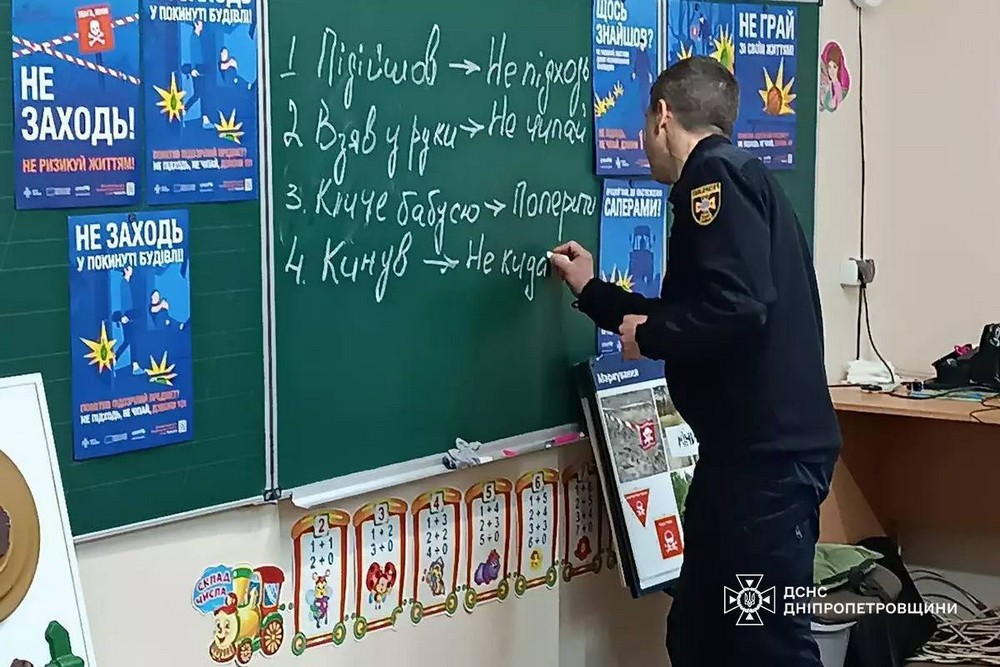 НЕ
ЗАХОДЬ!
НЕ РИЗИКУЙ ЖИТТЯМ!
У ПОКИНУТІ БУДІВЛІ!
НЕ ЗАХОДЬ
У ПОКИНУТІ БУДІВЛІ!
ПОМІТИВ ПІДОЗРІЛИЙ ПРЕДМЕТ?
НЕ ПІДХОДЬ, НЕ ЧІПАЙ, ДЗВОНИ 101
1 Підійшов → Не підходь
2 Взяв у руки → Не чіпай
3. Кличе бабусю →
4. Кинув → Не кида
ЩОСЬ
ЗНАЙШОВ?
НЕ ГРАЙ
ЗІ СВОЇМ ЖИТТЯМ!
САПЕРАМИ?
Маркування
СКЛАД
ЧИСЛА
2
1+1
2+0
3
1+2
3+0
4
1+3
2+2
4+0
5
1+4
2+3
5+0
6
1+5
2+4
3+3
6+0
ДСНС
ДНІПРОПЕТРОВЩИНИ